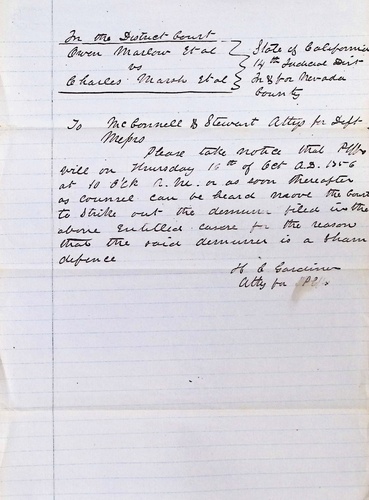 In the District Court
Owen Marlow Et al
vs
Charles Marsh Et al
State of California
14th Judicial Dist
In & for Nevada
County
To McConnell & Stewart Attys for Deft
Messrs
Please take notice that Plffs
will on Thursday 16th of Oct A.D. 1856
at 10 O'ck A.M. or as soon thereafter
as counsel can be heard move the Court
to Strike out the demurrer filed in the
above Entitled cause for the reason
that the said demurrer is a Sham
defence
H C Gardiner
Atty for Plffs